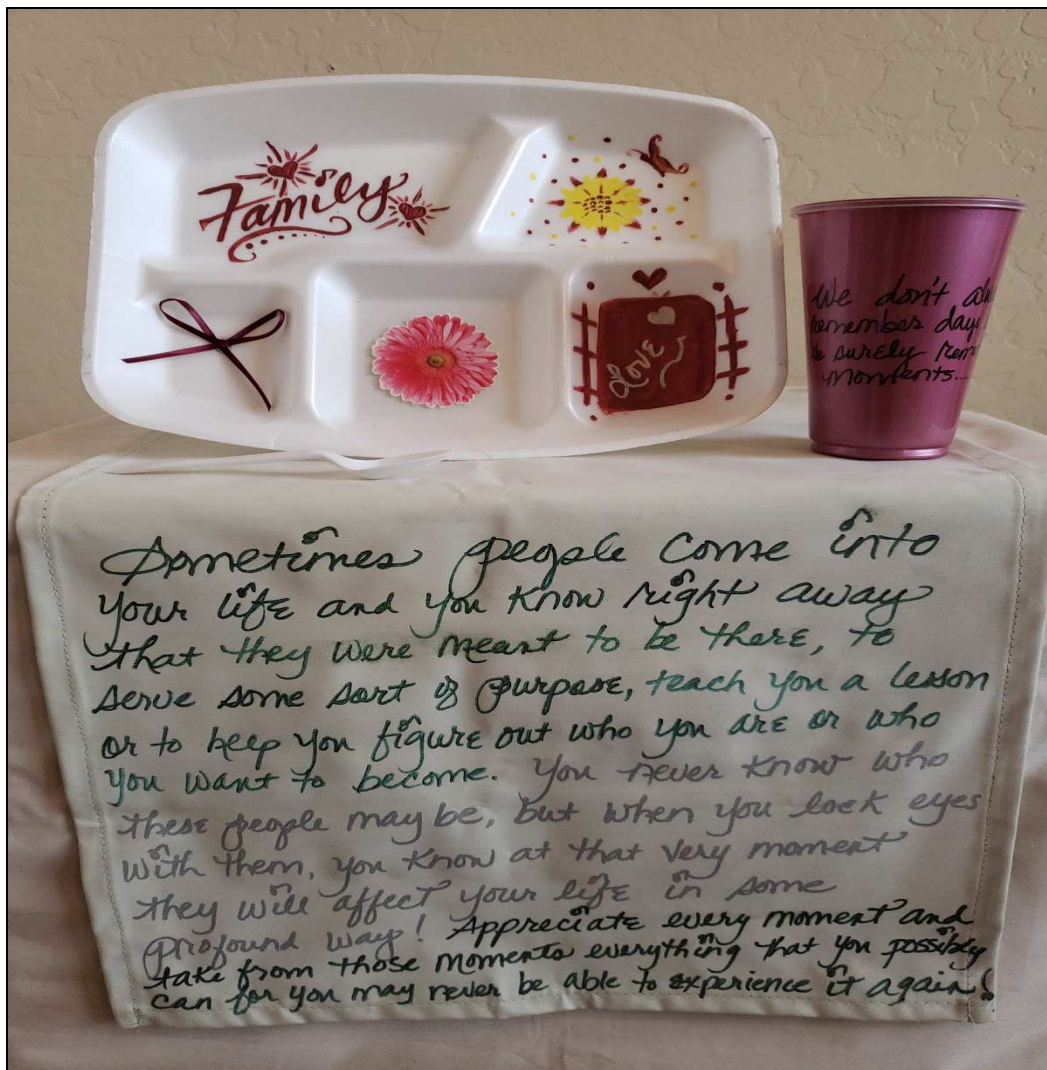 Family
Love
We don't
remember day
surely rem
moments...
Sometimes people come into
your life and you know right away
that they were meant to be there, to
serve some sort of purpose, teach you a lesson
or to keep you figure out who you are or who
you want to become. You never know who
these people may be, but when you lock eyes
with them, you know at that very moment
they will affect your life in some
profound way! Appreciate every moment and
take from those moments everything that you possibly
can for you may never be able to experience it again!